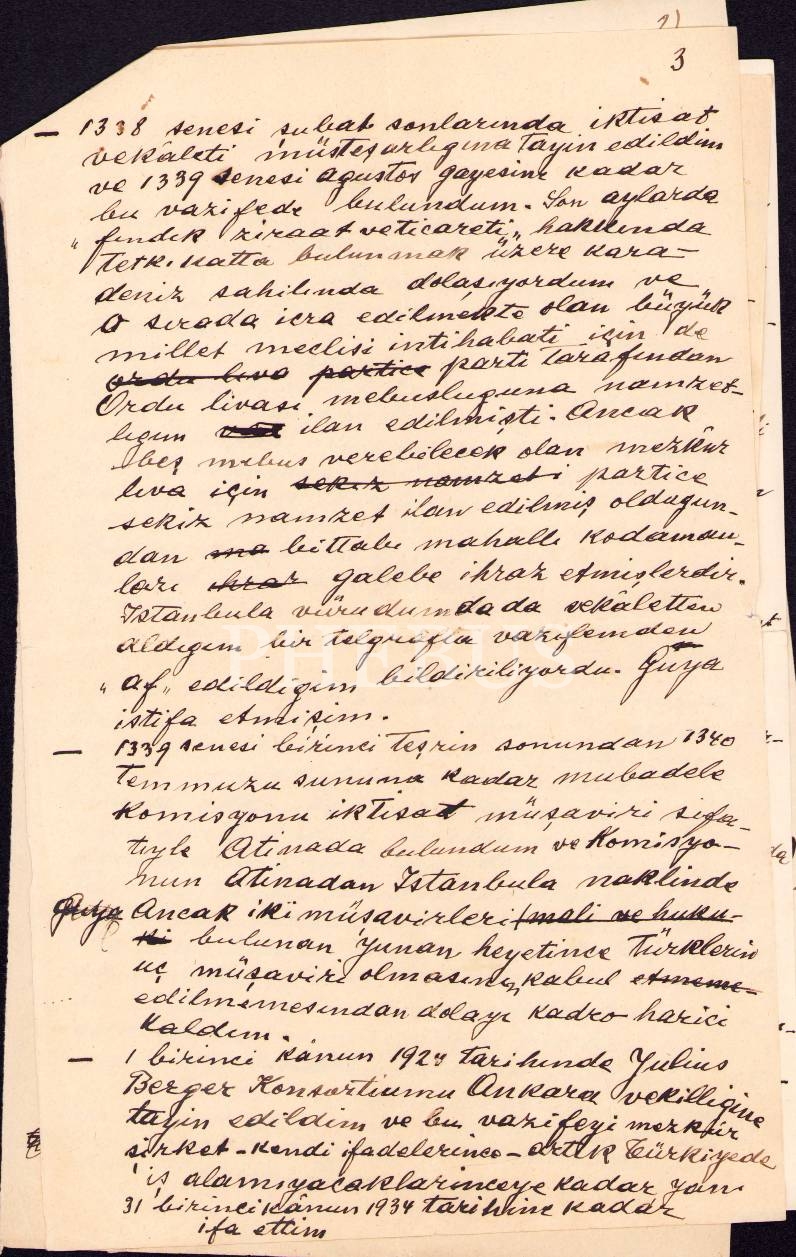 3
— 1338 senesi şubat sonlarında iktisat
vekâleti müsteşarlığına tayin edildim
ve 1339 senesi Ağustos gayesine kadar
bu vazifede bulundum. Son aylarda
"fındık ziraat ve ticareti" hakkında
tetkikatta bulunmak üzere kara-
deniz sahilında dolaşıyordum ve
o sırada icra edilmekte olan büyük
millet meclisi intihabatı için de
ordu liva partice parti tarafından
Ordu livası mebusluguna namzet-
ligim ilan edilmişti. Ancak
beş mebus verebilecek olan mezkûr
liva için sekiz namzeti partice
sekiz namzet ilan edilmiş oldugun-
dan ma bittabi mahalli kodaman-
ları ihraz galebe ihraz etmişlerdir.
Istanbula vürudumdada vekâletten
aldıgım bir telgrafla vazifemden
"af" edildigim bildiriliyordu. Guya
istifa etmişim.
— 1339 senesi birinci teşrin sonundan 1340
temmuzu sununa kadar mubadele
Komisyonu iktisat müşaviri sıfa-
tıyle Atinada bulundum ve Komisyo-
nun Atinadan Istanbula naklinde
Guya Ancak iki müşavirleri (mali ve huku-
ki bulunan Yunan heyetince Türklerin
üç müşaviri olmasının kabul etmeme-
edilmemesından dolayı kadro harici
kaldım.
— 1 birinci kânun 1924 tarihinde Julius
Berger Konsortiumu Ankara vekilligine
tayin edildim ve bu vazifeyi mezkûr
şirket - kendi ifadelerince - artık Türkiyede
iş alamıyacaklarınceye kadar yani
31 birincikânun 1934 tarihine kadar
ifa ettim
PHEBUS